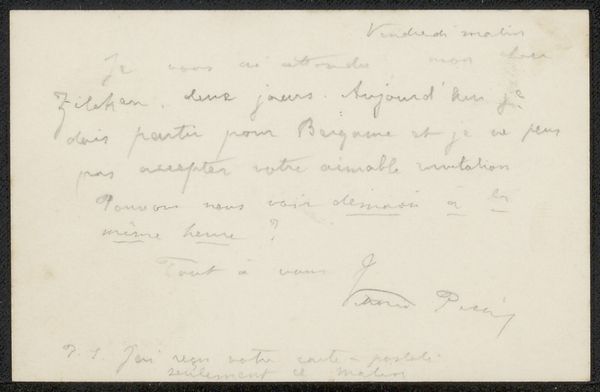 Vendredi matin
Je vous ai attendu mon cher
Zilcken, deux jours. Aujourd'hui je
dois partir pour Bergame et je ne peux
pas accepter votre aimable invitation
Pouvons nous voir demain à la
même heure ?
Tout à vous
Vittorio Pica
P. S. J'ai reçu votre carte-postale
seulement ce matin